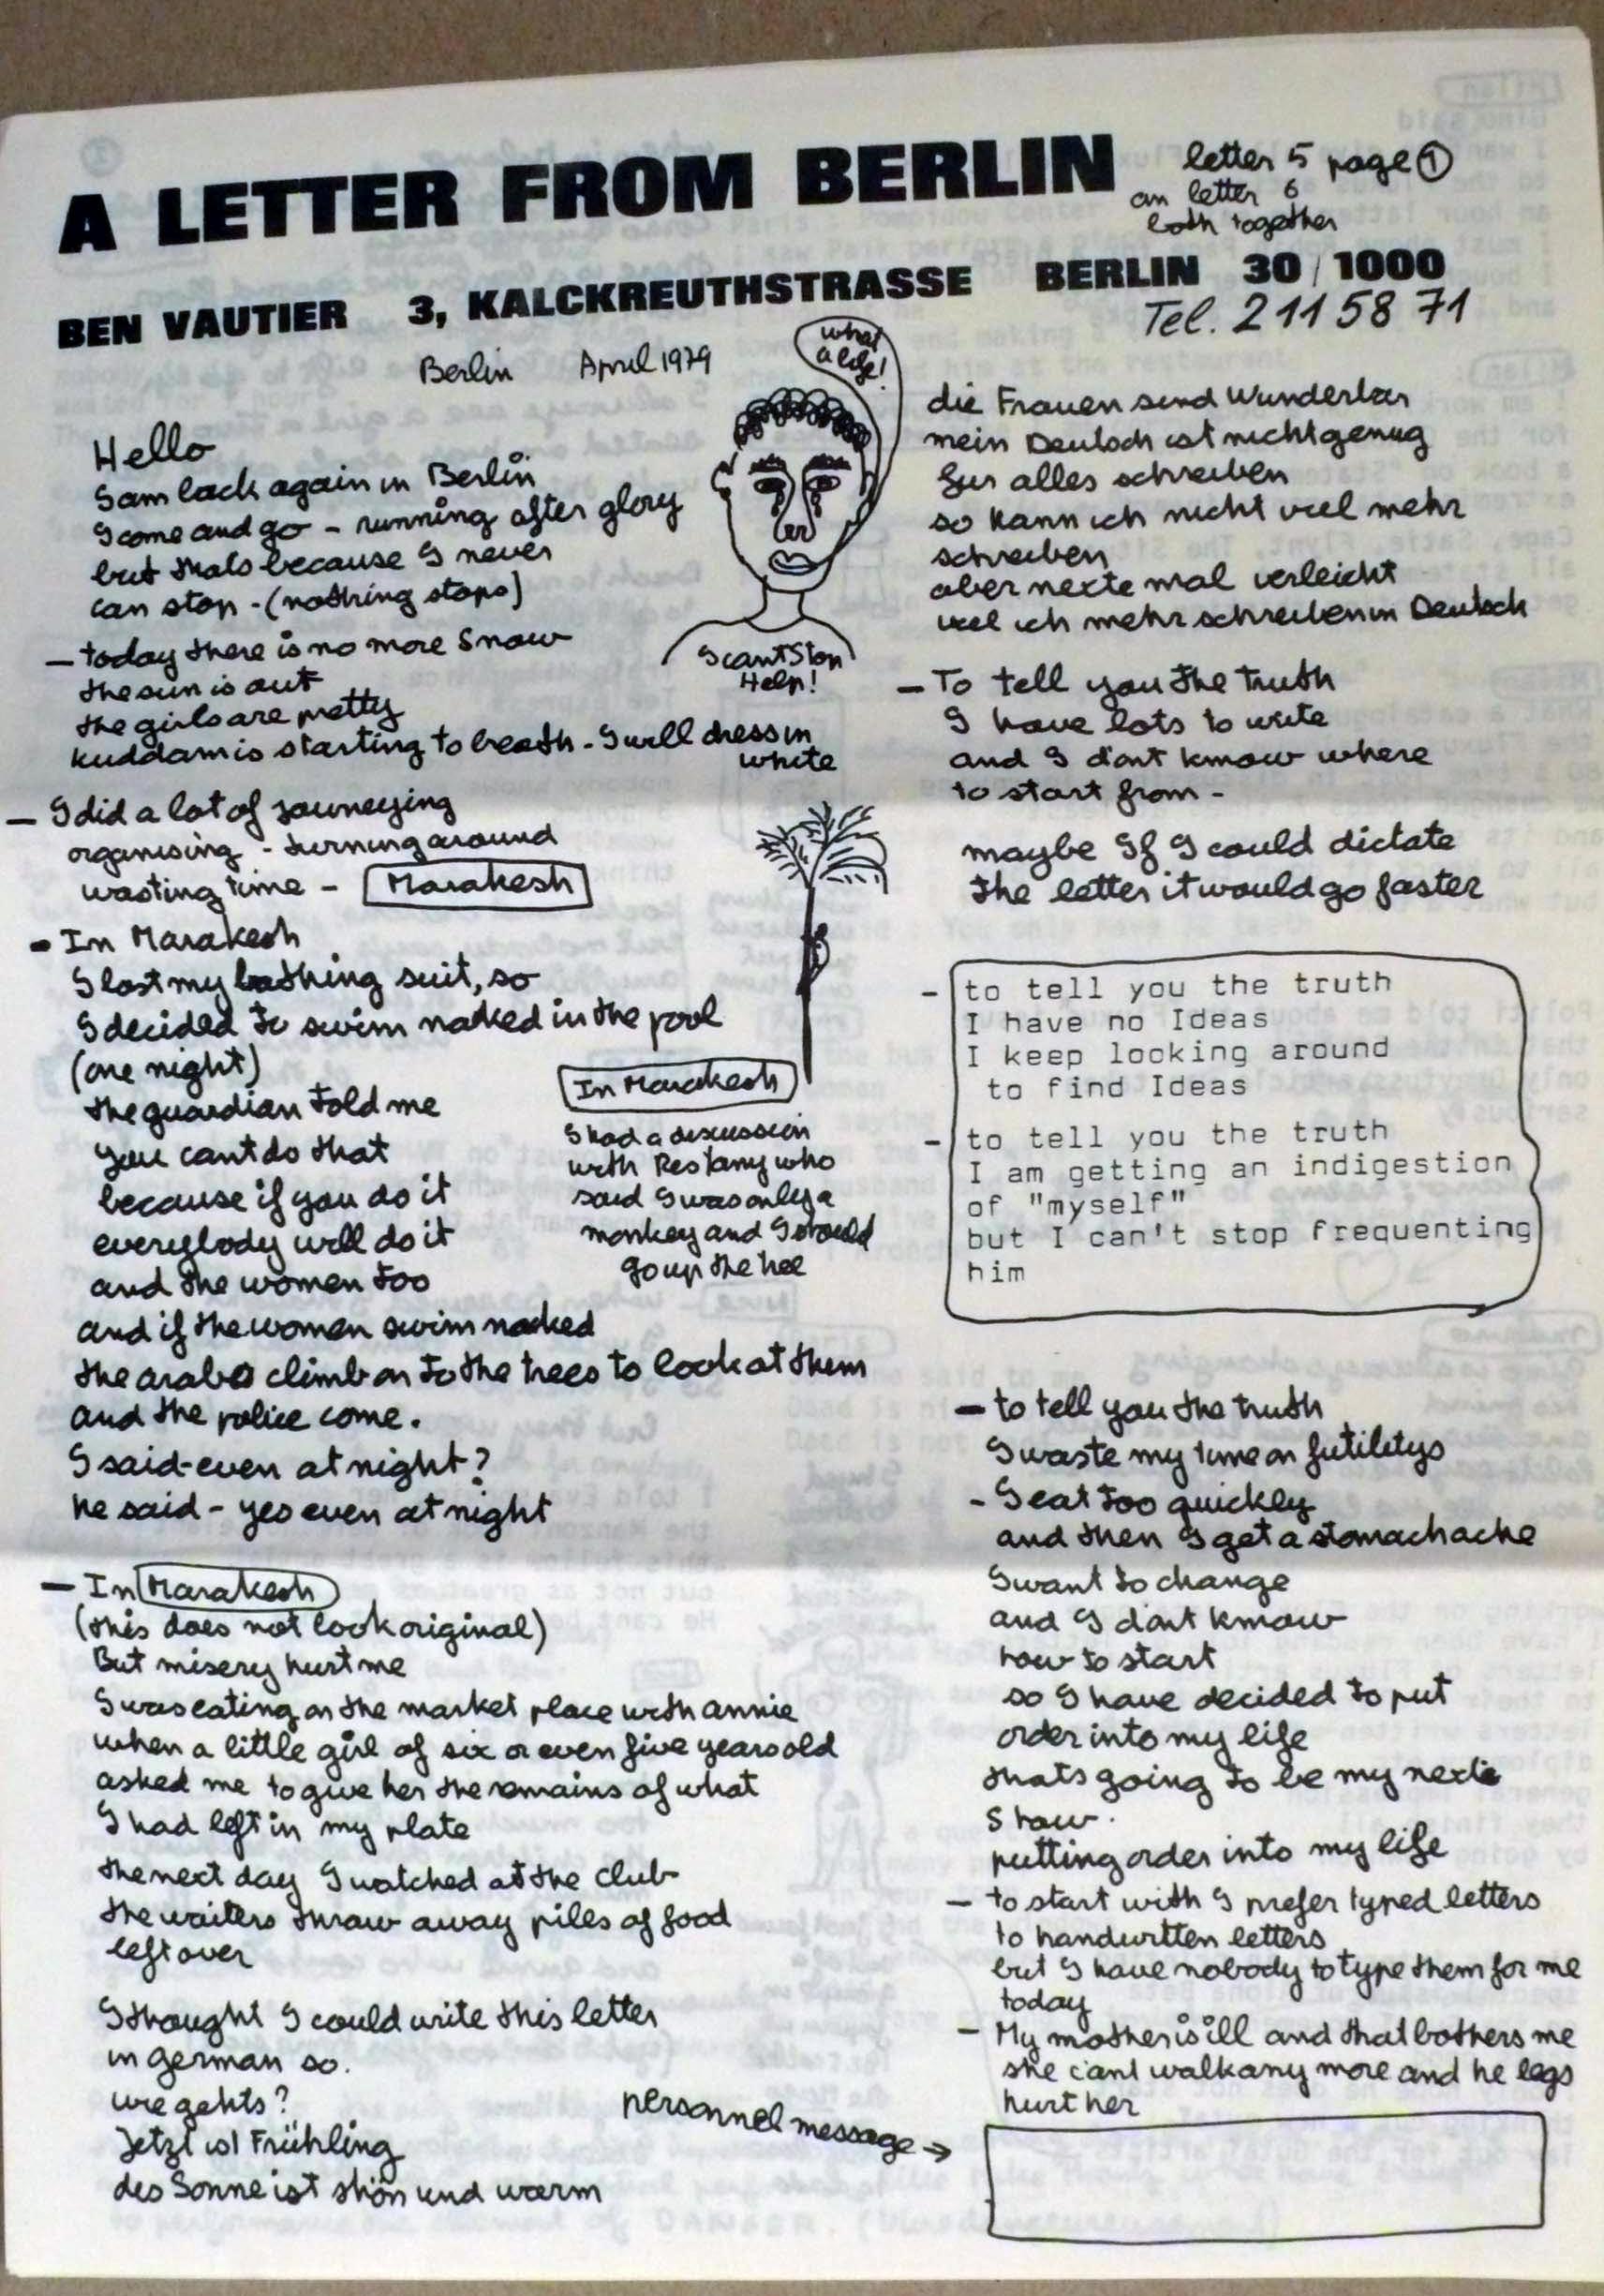 A LETTER FROM BERLIN
letter 5 page 1
an letter 6
both together
BEN VAUTIER 3, KALCKREUTHSTRASSE BERLIN 30/1000
Tel. 211 58 71
Berlin April 1979
what
a life!
I cant Stop
Help!
Hello
I am back again in Berlin
I come and go - running after glory
but thats because I never
can stop - (nothing stops)
- today there is no more snow
the sun is out
the girls are pretty
kuddam is starting to breath - I will dress in
white
- I did a lot of journeying
organising - turning around
wasting time - Marakesh
- In Marakesh
I lost my bathing suit, so
I decided to swim naked in the pool
(one night)
the guardian told me
you cant do that
because if you do it
everybody will do it
and the women too
and if the women swim naked
the arabs climb on to the trees to look at them
and the police come.
I said - even at night?
he said - yes even at night
In Marakesh
I had a discussion
with Restany who
said I was only a
monkey and I should
go up the tree
- In Marakesh
(this does not look original)
But misery hurt me
I was eating on the market place with annie
when a little girl of six or even five years old
asked me to give her the remains of what
I had left in my plate
the next day I watched at the club
the waiters throw away piles of food
left over
I thought I could write this letter
in german so.
wie gehts?
Jetzt ist Frühling
des Sonne ist shön und warm
die Frauen sind Wunderbar
mein Deutsch ist nicht genug
fur alles schreiben
so kann ich nicht viel mehr
schreiben
aber nexte mal verleicht
viel ich mehr schreiben in Deutsch
- To tell you the truth
I have lots to write
and I dont know where
to start from -
maybe If I could dictate
the letter it would go faster
- to tell you the truth
I have no Ideas
I keep looking around
to find Ideas
- to tell you the truth
I am getting an indigestion
of "myself"
but I can't stop frequenting
him
- to tell you the truth
I waste my time on futilitys
- I eat too quickly
and then I get a stomach ache
I want to change
and I dont know
how to start
so I have decided to put
order into my life
thats going to be my next
show.
putting order into my life
- to start with I prefer typed letters
to handwritten letters
but I have nobody to type them for me
today
- My mother is ill and that bothers me
she cant walk any more and he legs
hurt her
personnel message →